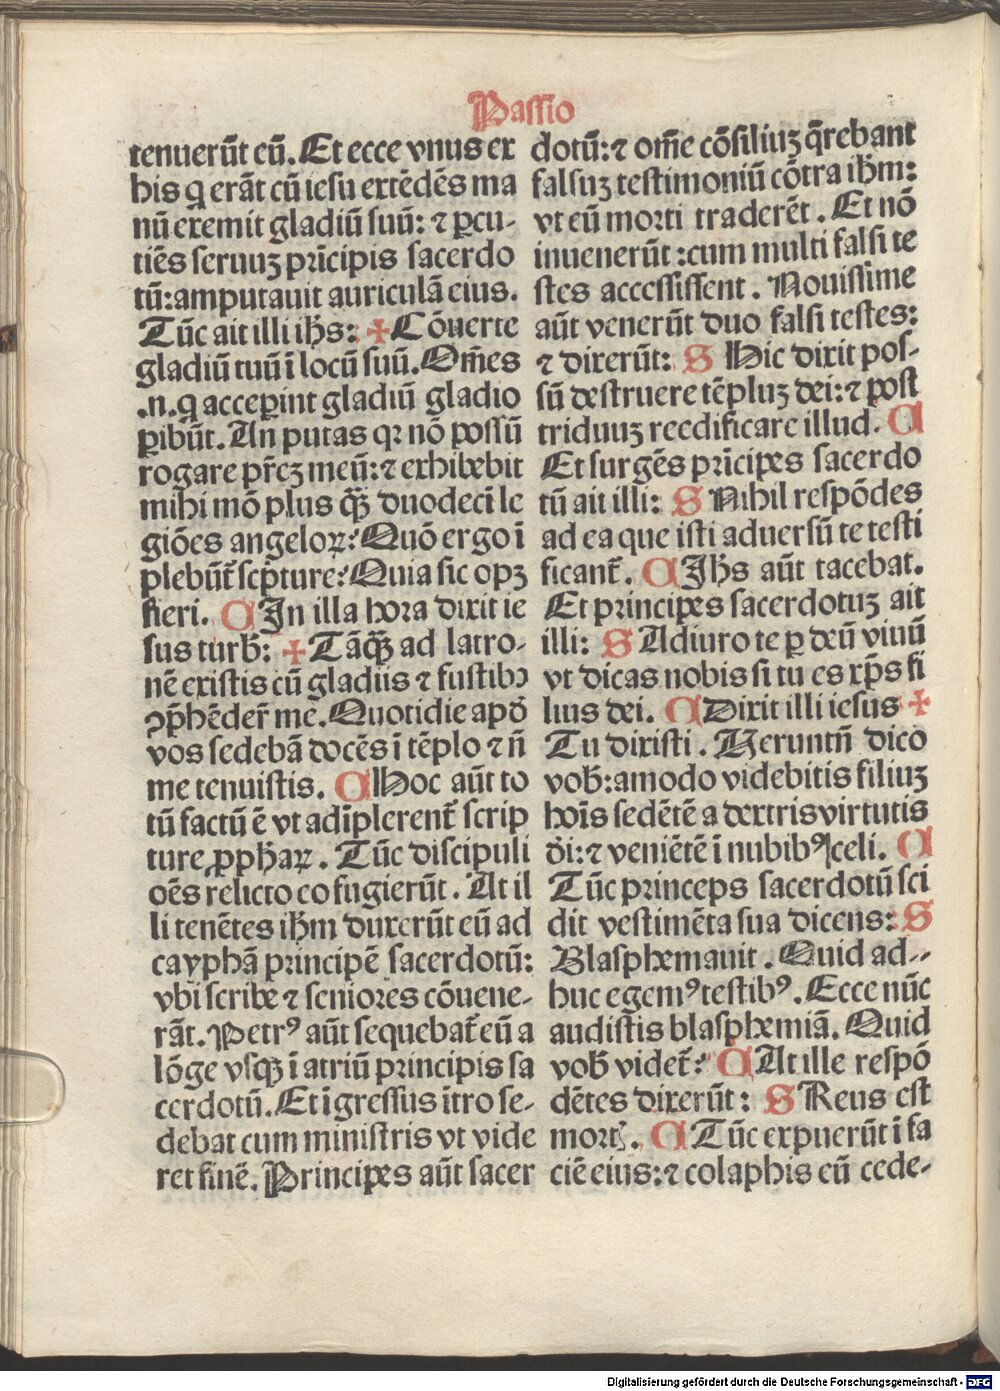 Passio
tenuerūt eū. Et ecce vnus ex
his q̄ erāt cū iesu extēdēs ma
nū exemit gladiū suū: ⁊ ꝑcu-
tiēs seruuꝫ prīcipis sacerdo
tū: amputauit auriculā eius.
Tūc ait illi ih̄s: ✠ Cōuerte
gladiū tuū ī locū suū. Om̄es
.n. q acceꝑint gladiū gladio
ꝑibūt. An putas qꝛ nō possū
rogare pr̄eꝫ meū: ⁊ exhibebit
mihi mō plus q̄ꝫ duodecī le
giōes angeloꝝ? Quō ergo ī
plebūt̄ scp̄ture? Quia sic opꝫ
fieri. C In illa hora dixit ie
sus turb̄: ✠ Tāq̄ꝫ ad latro-
nē existis cū gladiis ⁊ fustibꝰ
ꝯp̄hēder̄ me. Quotidie apd̄
vos sedebā docēs ī tēplo ⁊ n̄
me tenuistis. C Hoc aūt to
tū factū ē vt adīplerent̄ scrip
ture ꝓph̄aꝝ. Tūc discipuli
oēs relicto eo fugierūt. At il
li tenētes ih̄m duxerūt eū ad
cayphā principē sacerdotū:
vbi scribe ⁊ seniores cōuene-
rāt. Petrꝰ aūt sequebat̄ eū a
lōge vsqꝫ ī atriū principis sa
cerdotū. Et īgressus ītro se-
debat cum ministris vt vide
ret finē. Principes aūt sacer
dotū: ⁊ om̄e cōsiliuꝫ q̄rebant
falsuꝫ testimoniū cōtra ih̄m:
vt eū morti traderēt. Et nō
inuenerūt: cum multi falsi te
stes accessissent. Nouissime
aūt venerūt duo falsi testes:
⁊ dixerūt: S Hic dixit pos-
sū destruere tēpluꝫ dei: ⁊ post
triduuꝫ reedificare illud. C
Et surgēs prīcipes sacerdo
tū ait illi: S Nihil respōdes
ad ea que isti aduersū te testi
ficant̄. C Ih̄s aūt tacebat.
Et principes sacerdotuꝫ ait
illi: S Adiuro te ꝑ deū viuū
vt dicas nobis si tu es xp̄s fi
lius dei. C Dixit illi iesus ✠
Tu dixisti. Veruntn̄ dico
vob̄: amodo videbitis filiuꝫ
hoīs sedētē a dextris virtutis
d̄i: ⁊ veniētē ī nubibꝰ celi. C
Tūc princeps sacerdotū sci
dit vestimēta sua dicens: S
Blasphemauit. Quid ad-
huc egemꝰ testibꝰ. Ecce nūc
audistis blasphemiā. Quid
vob̄ videt̄? C At ille respō
dētes dixerūt: S Reus est
mortꝭ. C Tūc expuerūt ī fa
ciē eius: ⁊ colaphis eū cede-
Digitalisierung gefördert durch die Deutsche Forschungsgemeinschaft - DFG